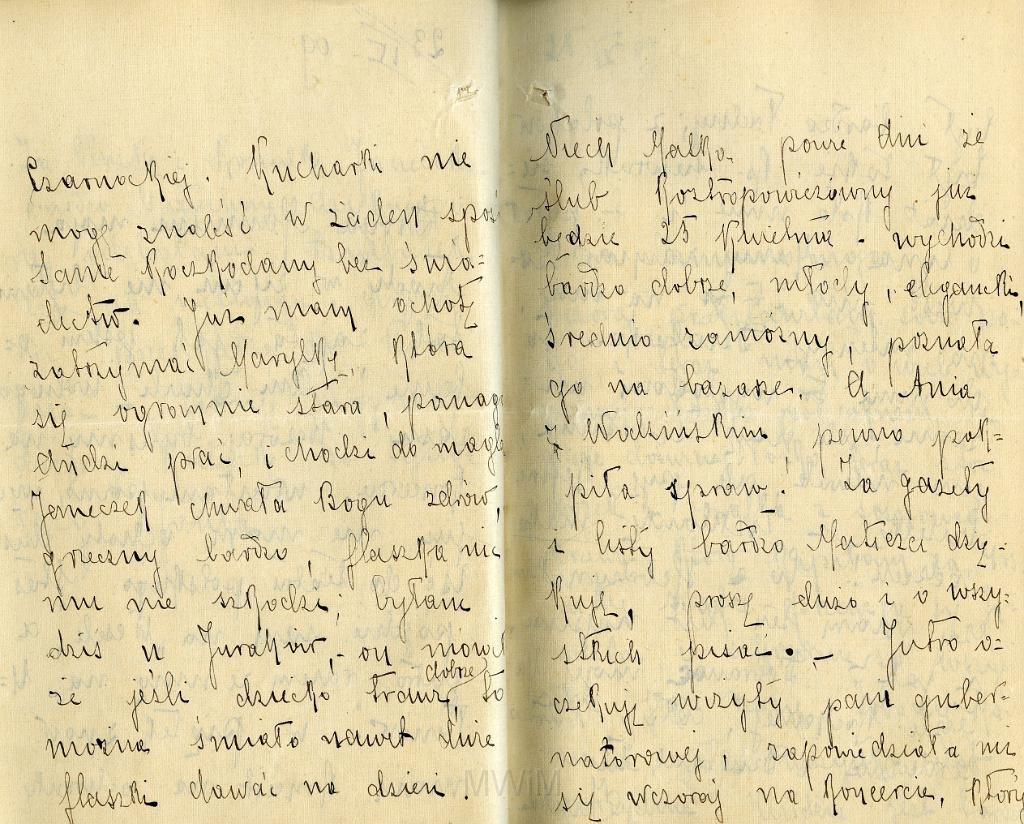 Czarnockiej. Kucharki nie
mogę znaleść w żaden spo-
same Roczkodany bez świa-
dectw. Już mam ochotę
zatrzymać Marylkę, która
się ogromnie stara, pomaga
Andzi prać, i chodzi do magla
Jeneczek chwała Bogu zdrów,
grzeczny bardzo, flaszka nic
mu nie szkodzi; byłam
dziś u Jurakow,- on mówił
że jeśli dziecko trawi dobrze, to
można śmiało nawet dwie
flaszki dawać na dzień.
Niech Malka powie Uni że
ślub Roztropowiczówny już
będzie 25 Kwietnia - wychodzi
bardzo dobrze, młody, elegancki,
średnio zamożny, poznała
go na bazarze. A Ania
z Wodzińskim pewno przy-
piła spraw. Za gazety
i listy bardzo Mateczce dzię-
kuję, proszę dużo i o wszy-
stkich pisać. – Jutro o-
czekuję wizyty pani guber-
natorowej, zapowiedziała mi
się wczoraj na koncercie, który
MWiM